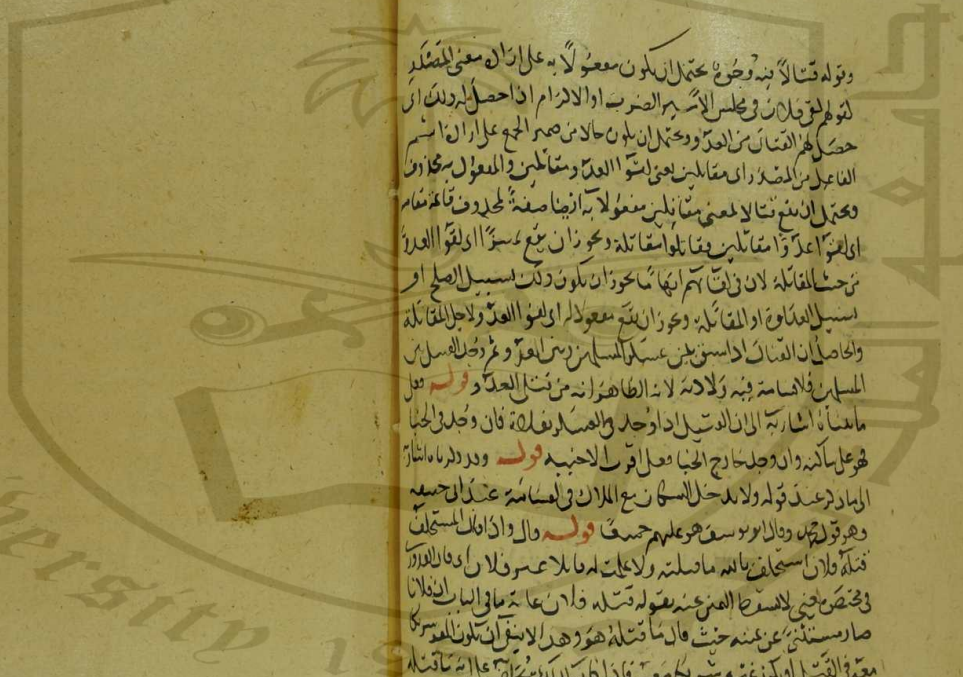 وقوله قتالاً فيه وجوه يحتمل ان يكون مفعولاً به على ارادة معنى المصدر
لقولهم لقي فلان في مجلس الأمير الضرب او الالزام اذا حصل له ذلك اى
حصل لهم القتال من العدو ويحتمل ان يكون حالا من ضمير الجمع على ارادة اسم
الفاعل من المصدر اى مقاتلين يعنى لقوا العدو مقاتلين والمفعول به محذوف
ويحتمل ان يقع قتالا لمعنى مقاتلين مفعولا به ايضا صفة لمحذوف قائمة مقامه
اى لقوا عدوا مقاتلين ويجوز ان يقع تمييزا اى لقوا العدو
من حيث المقاتلة لان في لقائهم ابهاما يجوز ان يكون ذلك لسبيل الصلح او
لسبيل العداوة او المقاتلة ويجوز ان يقع مفعولا له اى لقوا العدو لاجل المقاتلة
والحاصل ان القتال اذا سبق بين عسكر المسلمين وبين العدو ثم وجد القتيل من
المسلمين فلا قسامة فيه ولا دية لانه الظاهر انه من قتل العدو قوله فعلى
ما بيناه اشارة الى ان القتيل اذا وجد في العسكر بفلاة فان وجد في الخبا
فهو على ساكنه وان وجد خارج الخبا فعلى اقرب الاخبية قوله وقد ذكرناه اشارة
الى ما ذكر عند قوله ولا يدخل السكان مع الملاك في القسامة عند ابى حنيفه
وهو قول محمد وقال ابو يوسف هو عليهم جميعا قوله قال واذا قال المستحلف
قتله فلان استحلف بالله ما قتلته ولا علمت له قاتلا غير فلان اى قال القدورى
في مختصره يعنى لا يسقط اليمين عنه بقوله قتله فلان غاية ما في الباب ان فلانا
صار مستثنى عن يمينه حيث قال ما قتله هو وهذا لا ينفى ان يكون المقر شريكا
معه في القتل